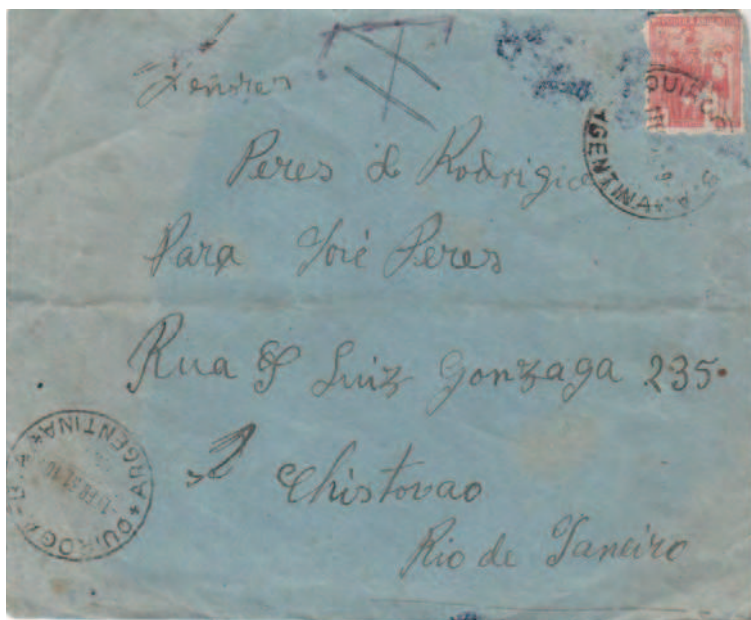 Señores
Peres & Rodrigie
Para José Peres
Rua S Luiz Gonzaga 235
S Chistovao
Rio de Janeiro
T
QUIROGA
ARGENTINA
QUIROGA
ARGENTINA
FEB 31 10